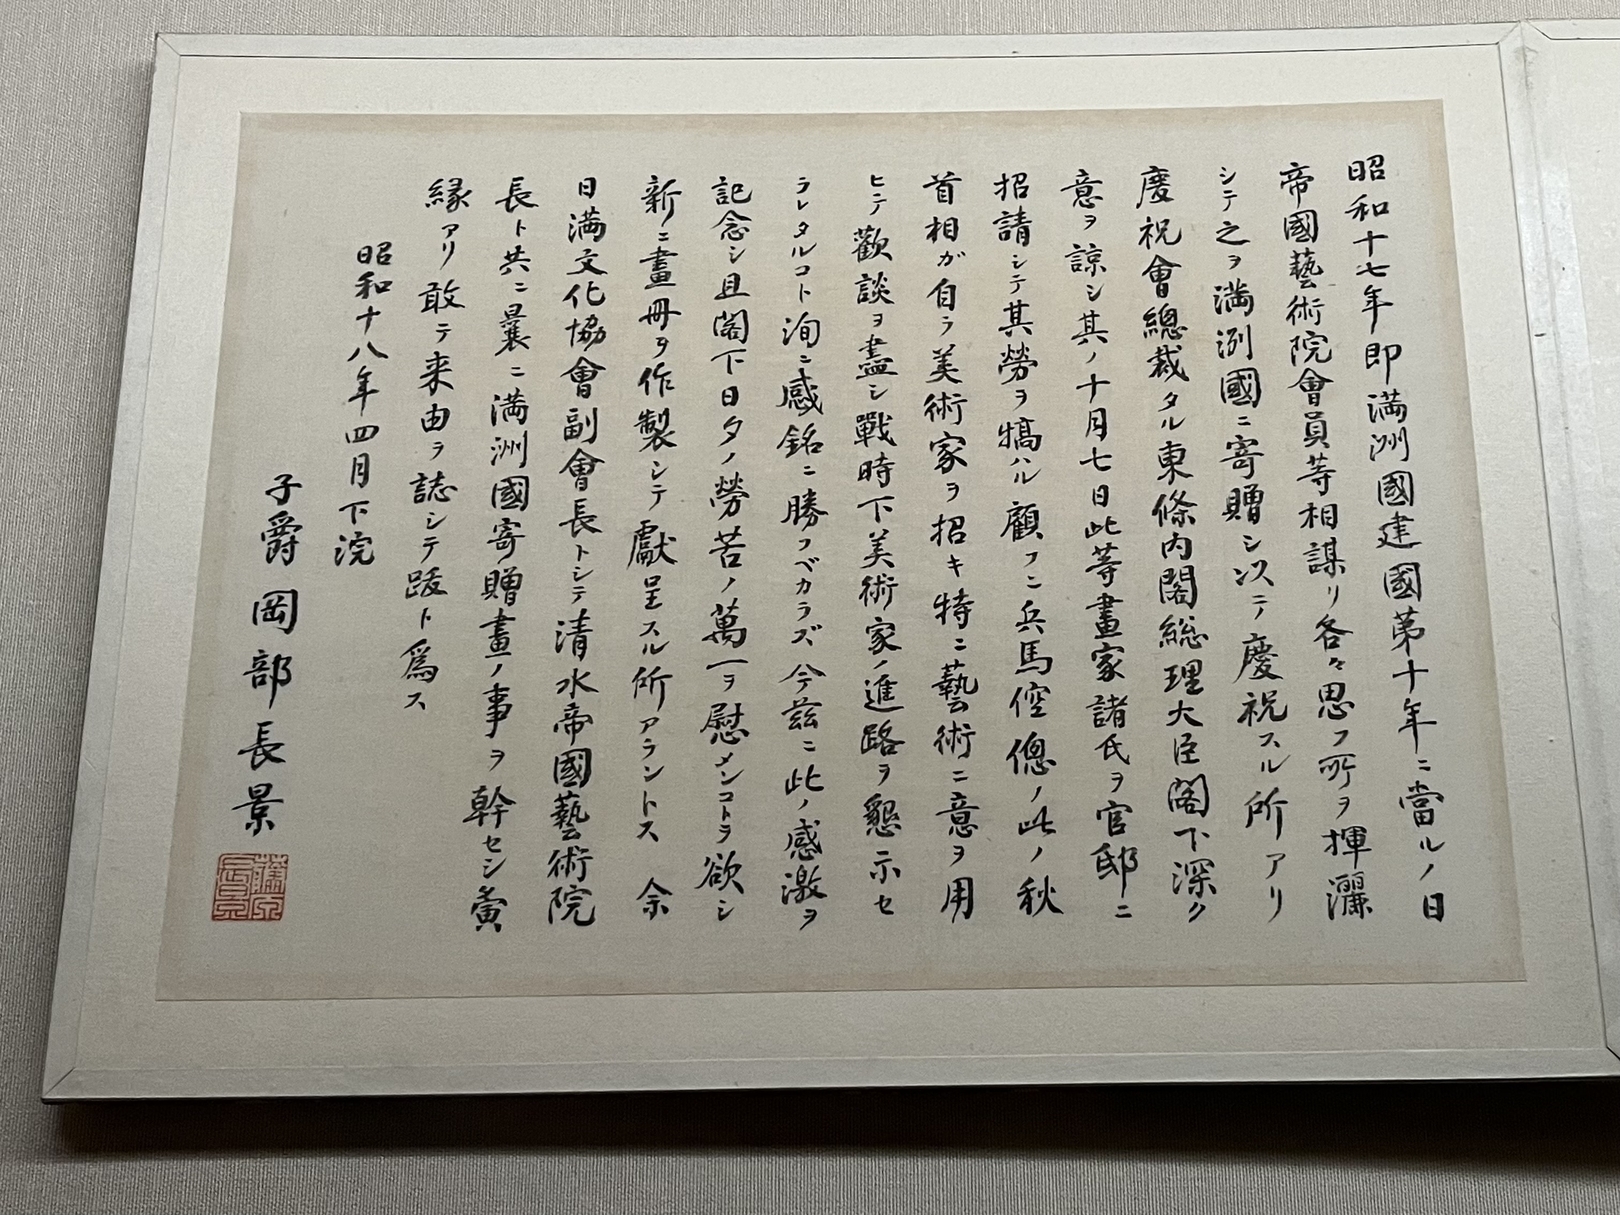 昭和十七年即満洲國建國第十年ニ當ルノ日
帝國藝術院會員等相謀リ各々思フ所ヲ揮灑
シテ之ヲ満洲國ニ寄贈シ次テ慶祝スル所アリ
慶祝會總裁タル東條内閣総理大臣閣下深ク
意ヲ諒シ其ノ十月七日此等畫家諸氏ヲ官邸ニ
招請シテ其勞ヲ犒ハル顧フニ兵馬倥傯ノ此ノ秋
首相ガ自ラ美術家ヲ招キ特ニ藝術ニ意ヲ用
ヒテ歡談ヲ盡シ戰時下美術家ノ進路ヲ懇示セ
ラレタルコト洵ニ感銘ニ勝フベカラズ今茲ニ此ノ感激ヲ
記念シ且閣下日夕ノ勞苦ノ萬一ヲ慰メンコトヲ欲シ
新ニ畫冊ヲ作製シテ獻呈スル所アラントス 余
日満文化協會副會長トシテ清水帝國藝術院
長ト共ニ曩ニ満洲國寄贈畫ノ事ヲ幹セシ夤
縁アリ敢テ来由ヲ誌シテ跋ト為ス
昭和十八年四月下浣
子爵岡部長景